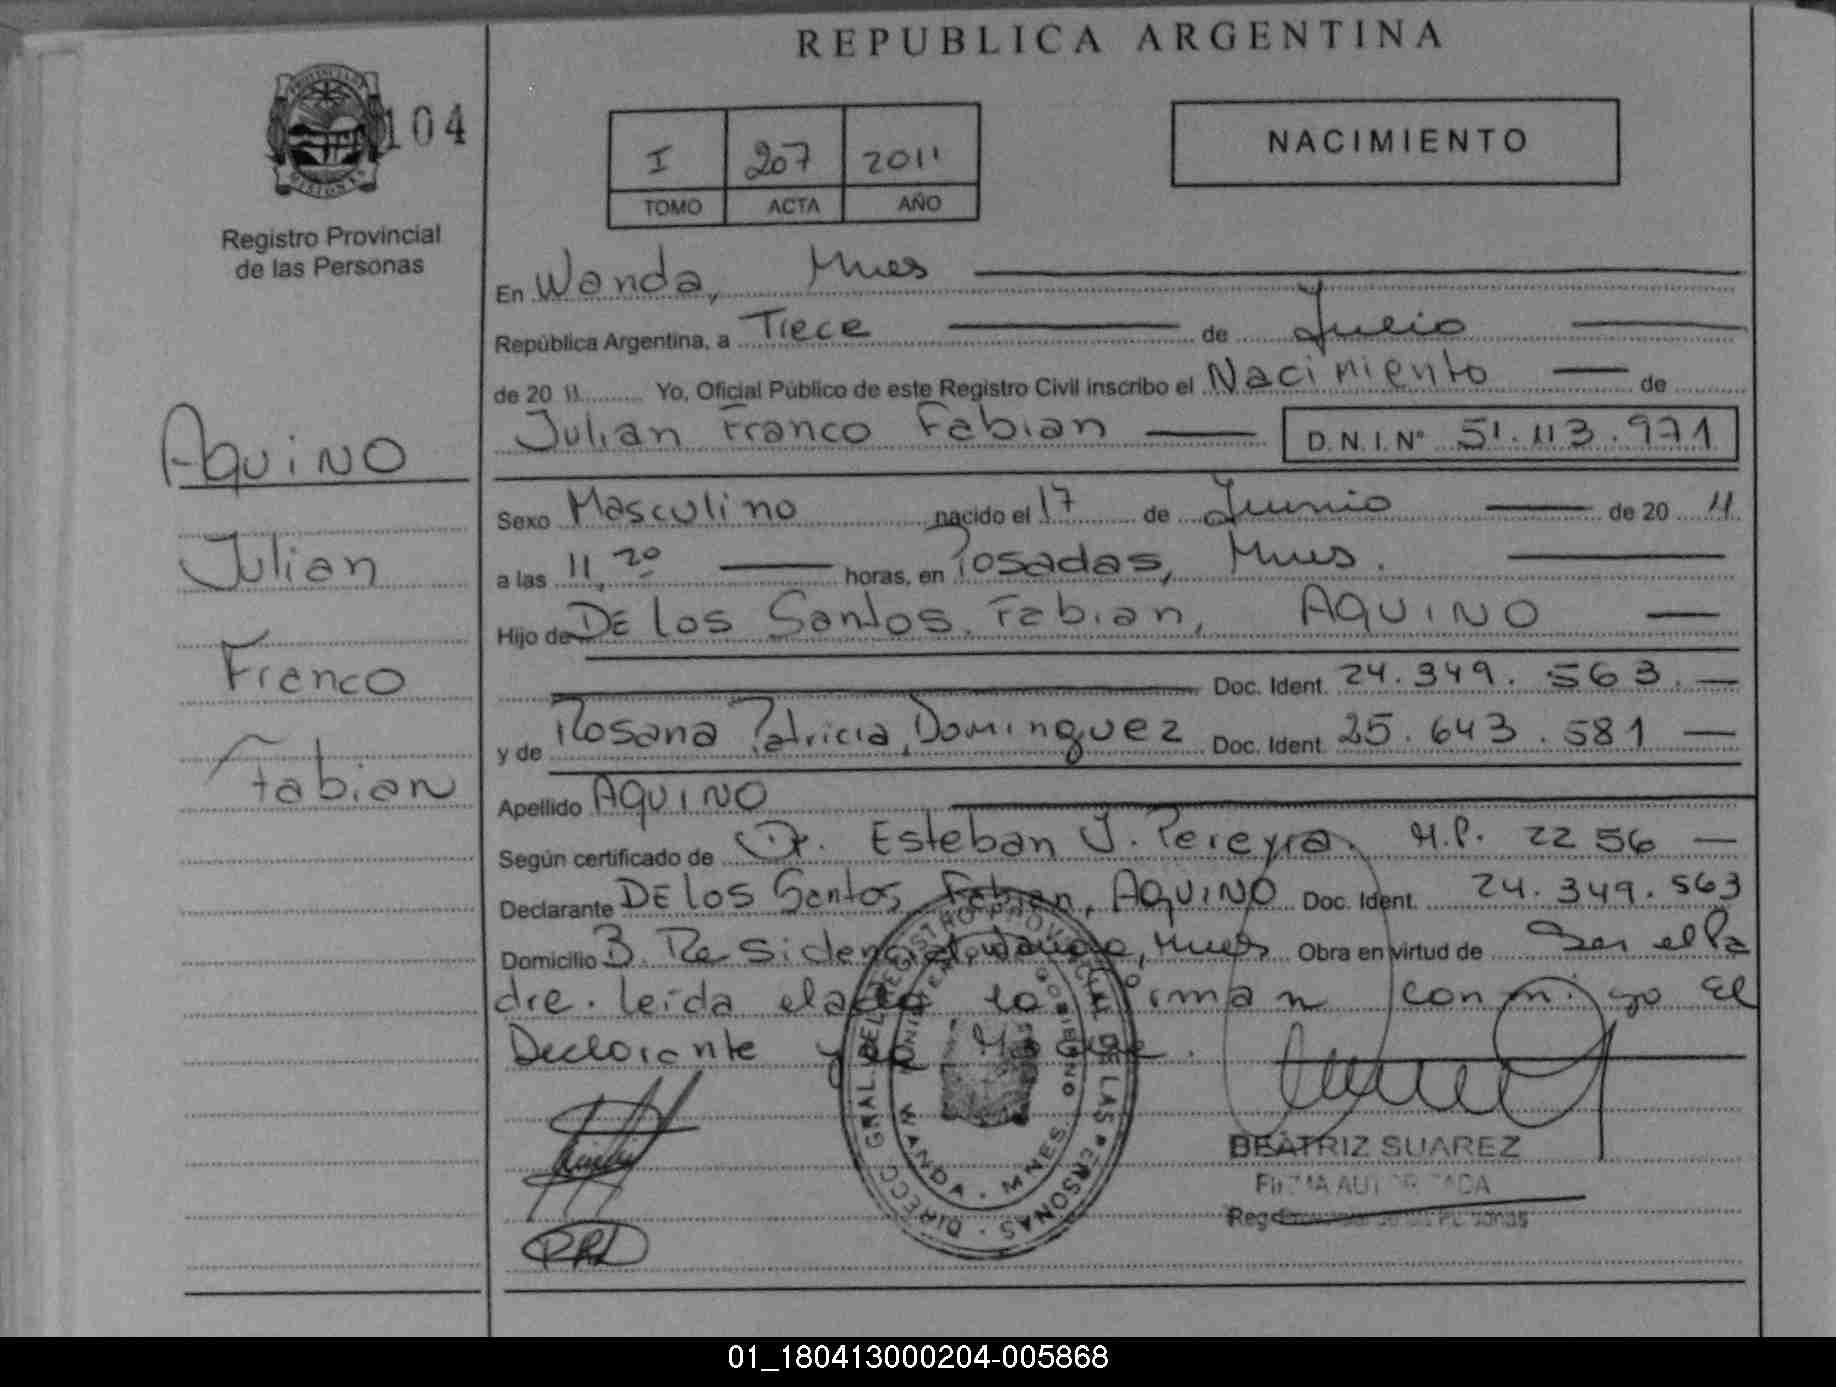 REPUBLICA ARGENTINA
PROVINCIA DE MISIONES
104
Registro Provincial
de las Personas
I 207 2011
TOMO ACTA AÑO
NACIMIENTO
En Wanda, Mnes
República Argentina, a Trece de Julio
de 20 11 Yo, Oficial Público de este Registro Civil inscribo el Nacimiento de
Julian Franco Fabian D.N.I. Nº 51.113.971
Aquino
Julian
Franco
Fabian
Sexo Masculino nacido el 17 de Junio de 20 11
a las 11,20 horas, en Posadas, Mnes.
Hijo de DE los Santos Fabian, AQUINO
Doc. Ident. 24.349.563.
y de Rosana Patricia Dominguez Doc. Ident. 25.643.581
Apellido AQUINO
Según certificado de Dr. Esteban J. Pereyra. M.P. 2256
Declarante DE los Santos Fabian, AQUINO Doc. Ident. 24.349.563
Domicilio B. Residencial, Wanda, Mnes Obra en virtud de Ser el Pa
dre. leida el acta la firman conmigo El
Declarante y la Madre.
DIRECC. GRAL. DEL REGISTRO PROVINCIAL DE LAS PERSONAS
GOBIERNO
WANDA - MNES.
BEATRIZ SUAREZ
FIRMA AUTORIZADA
01_180413000204-005868